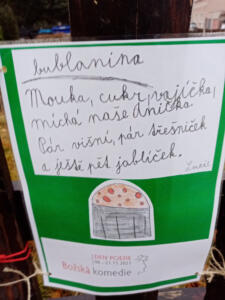 bublanina
Mouka, cukr, vajíčka,
míchá naše Anička.
Pár višní, pár třešniček
a ještě pět jablíček.
DEN POEZIE
Božská komedie